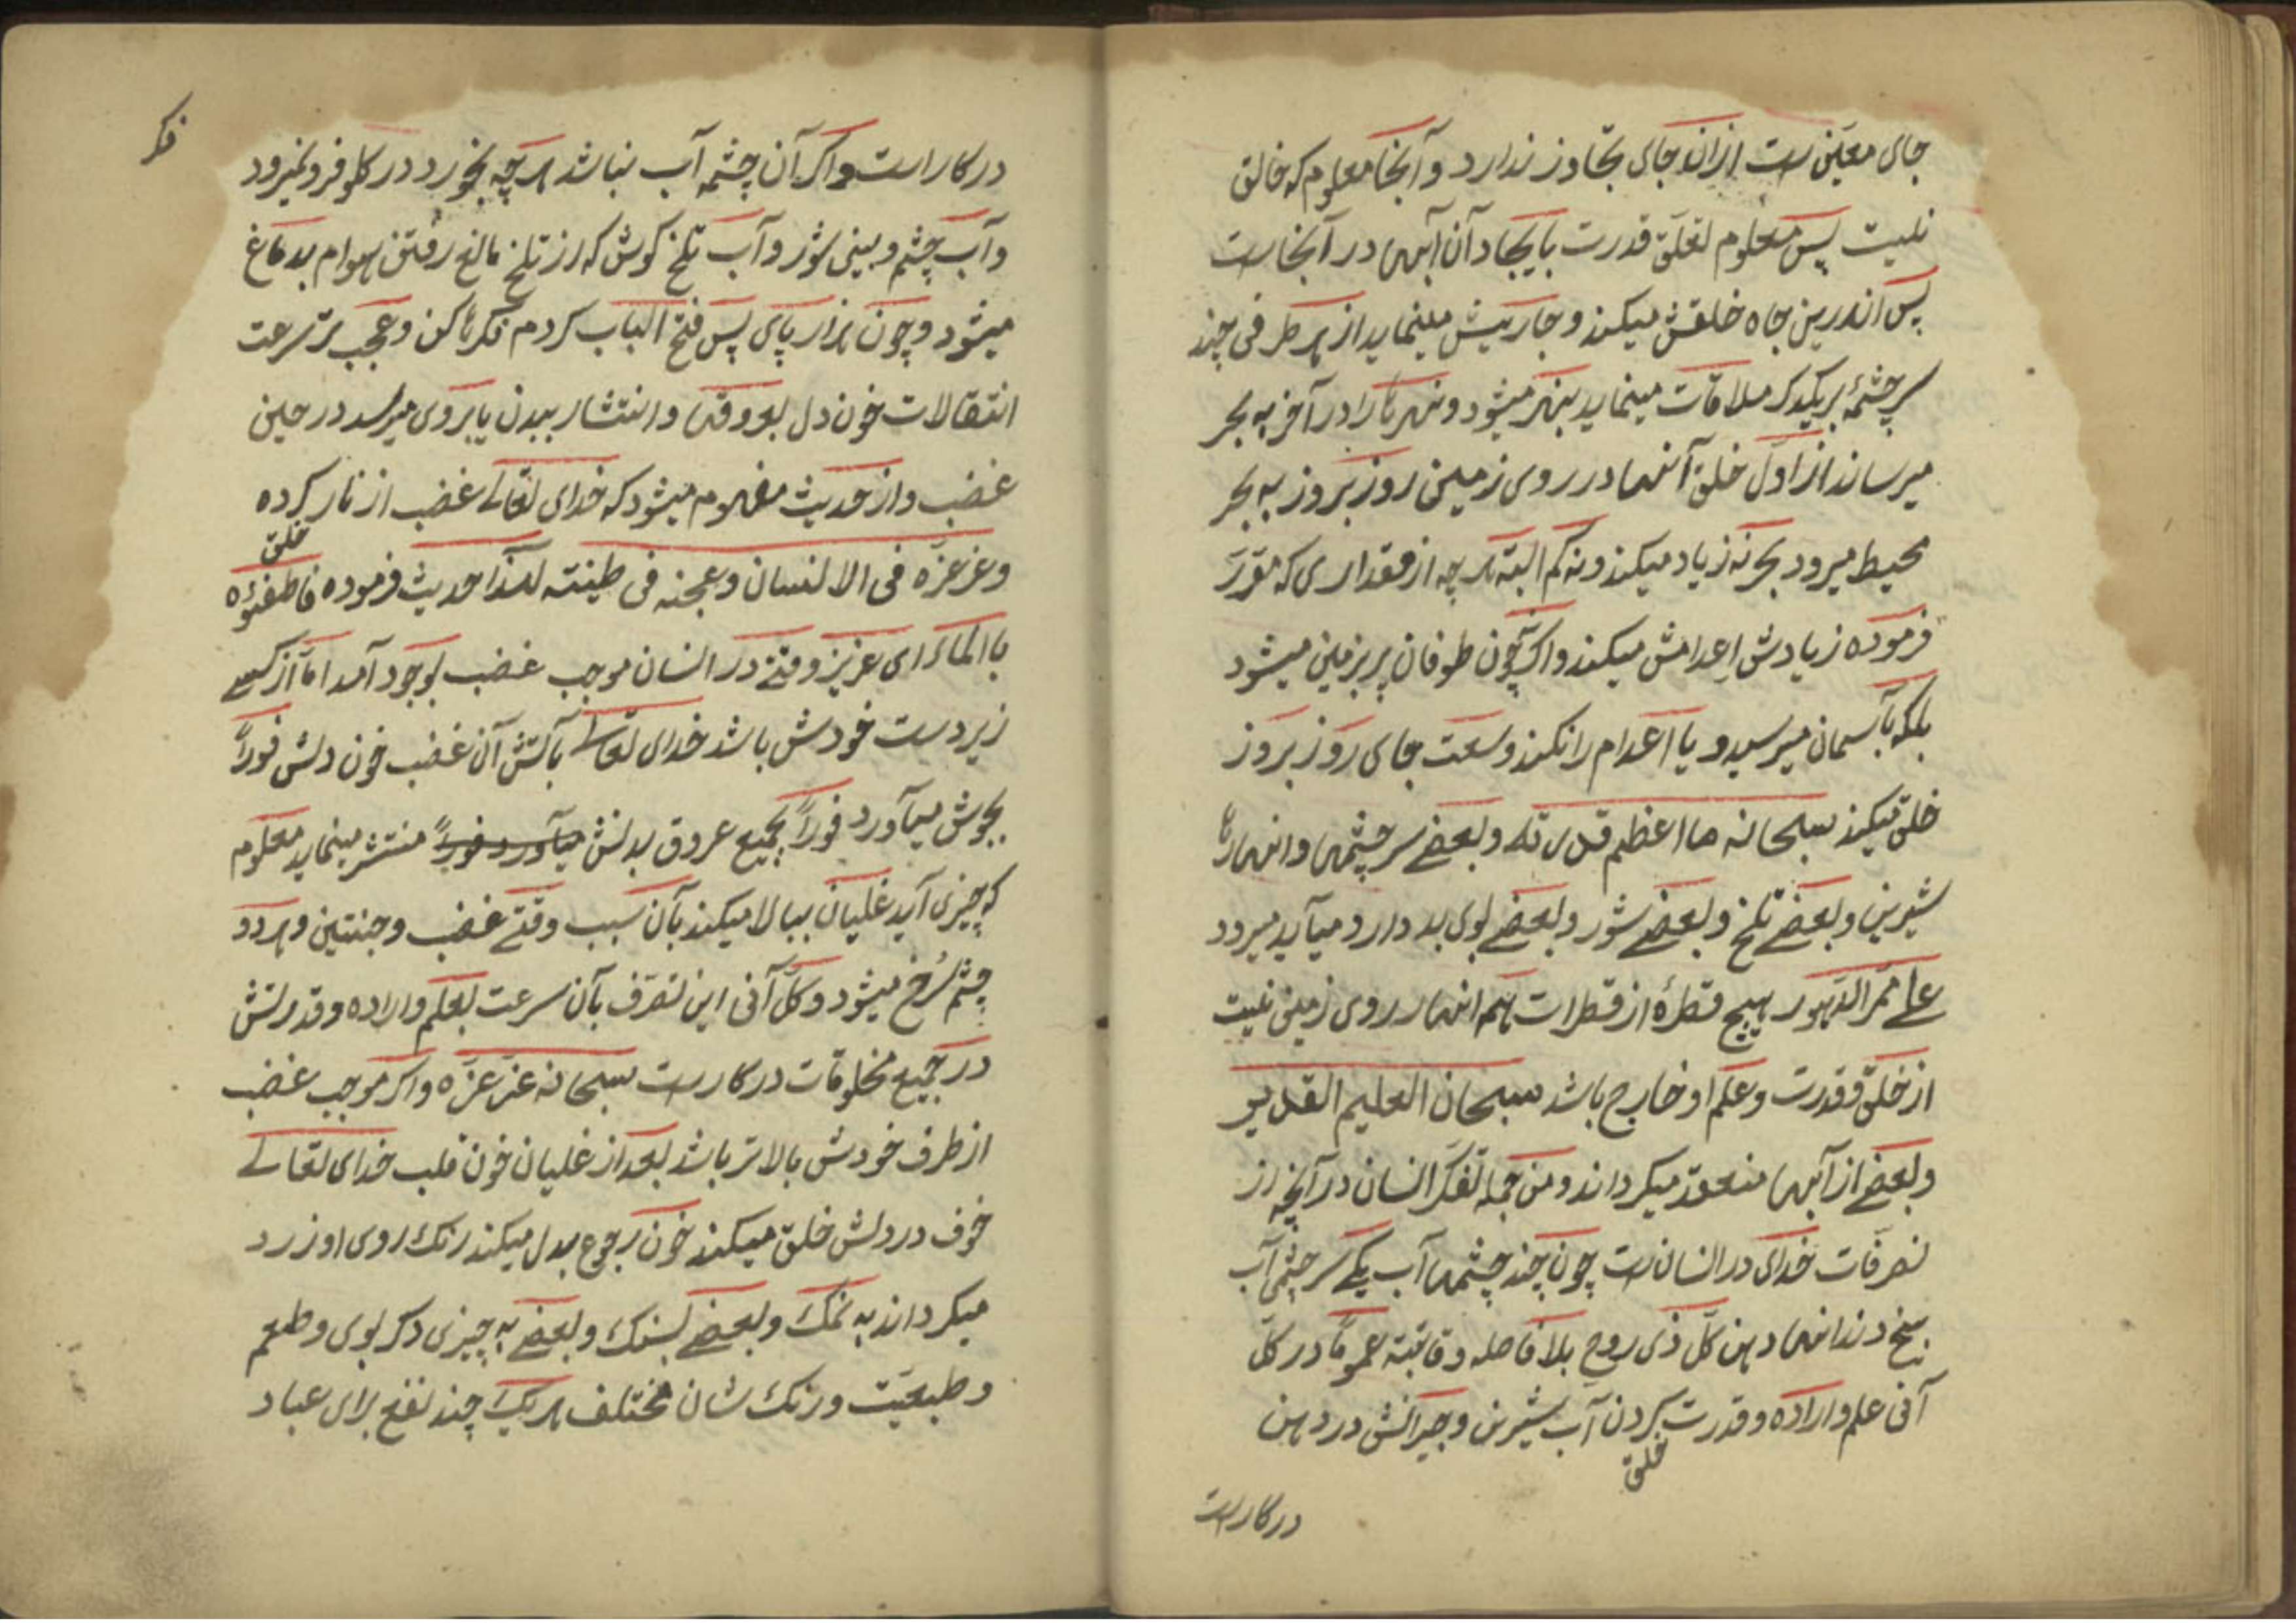 جای معیّن است ازان جای تجاوز ندارد و آنجا معلوم که خالق
نیست پس معلوم تعلّق قدرت بایجاد آن آبها در آنجاست
پس اندرین جاه خلقش میکند و جاریش مینماید از هر طرفی چند
سرچشمهٔ بریکدکر ملاقات مینماید بنهر میشود و نهرها را در آخر به بحر
میرساند از اوّل خلق آنها در روی زمین روز بروز به بحر
محیط میرود بحر نه زیاد میکند و نه کم البته هر چه از مقداری که مقرّر
فرموده زیادش اعدامش میکند و اکر چون طوفان پر بزمین میشود
بلکه بآسمان میرسید و یا اعدام را نکند وسعت جای روز بروز
خلق میکند سبحانه ما اعظم قدرته و بعضے سرچشمها و انهارها
شیرین و بعضے تلخ و بعضے شور و بعضے بوی بد دارد میآید میرود
علے ممرّ الدّهور هیچ قطرهٔ از قطرات هم انهار روی زمین نیست
از خلق و قدرت و علم او خارج باشد سبحان العلیم القدیر
و بعضے از آبها منعقد میکرداند و من جمله تفکّر انسان در آنچه از
تصرّفات خدای در انسانست چون چند چشمها آب یکے سرچشمهٔ آب
بیخ دندانها دهن کلّ ذی روح بلا فاصله و قاتبته عموماً در کلّ
آنی علم و اراده و قدرت کردن آب شیرین و جیرانش در دهن
خلق
درکاراست
فکر
درکاراست و اکر آن چشمه آب نباشد هر چه بخورد در کلو فرو نمیرود
و آب چشم و بینی شور و آب تلخ کوش که از تلخ مانع رفتن هوام بدماغ
میشود و چون هزار پای پس فتح الباب کردم فکرها کن و عجب تر سرعت
انتقالات خون دل بعروقها و انتشار ببدن یا بروی میرسد در حین
غضب و از حدیث مفهوم میشود که خدای تعالے غضب از نار کرده
خلق
و غرغزه فی الانسان و عجنه فی طینته لهذا حدیث فرموده فاطفئوه
باالماء ای عزیز وقتے در انسان موجب غضب بوجود آمد امّا از کسے
زیردست خودش باشد خدای تعالے بآتش آن غضب خون دلش فوراً
بجوش میآورد فوراً بجمیع عروق بدنش میآورد فوراً منتشر مینماید معلوم
که چیزی آید غلیان ببالا میکند بآن سبب وقتے غضب وجنتین و هر دو
چشم سُرخ میشود و کلّ آنی این تصرّف بآن سرعت بعلم و اراده و قدرتش
در جمیع مخلوقات درکارست سبحانه عزّ عزّه و اکر موجب غضب
از طرف خودش بالاتر باشد بعد از غلیان خون قلب خدای تعالے
خوف در دلش خلق میکند خون رجوع بدل میکند رنک روی او زرد
میکرداند به نمک و بعضے بسنک و بعضے به چیزی دکر بوی و طعم
و طبعیّت و رنک شان مختلف هر یک چند نفع برای عباد